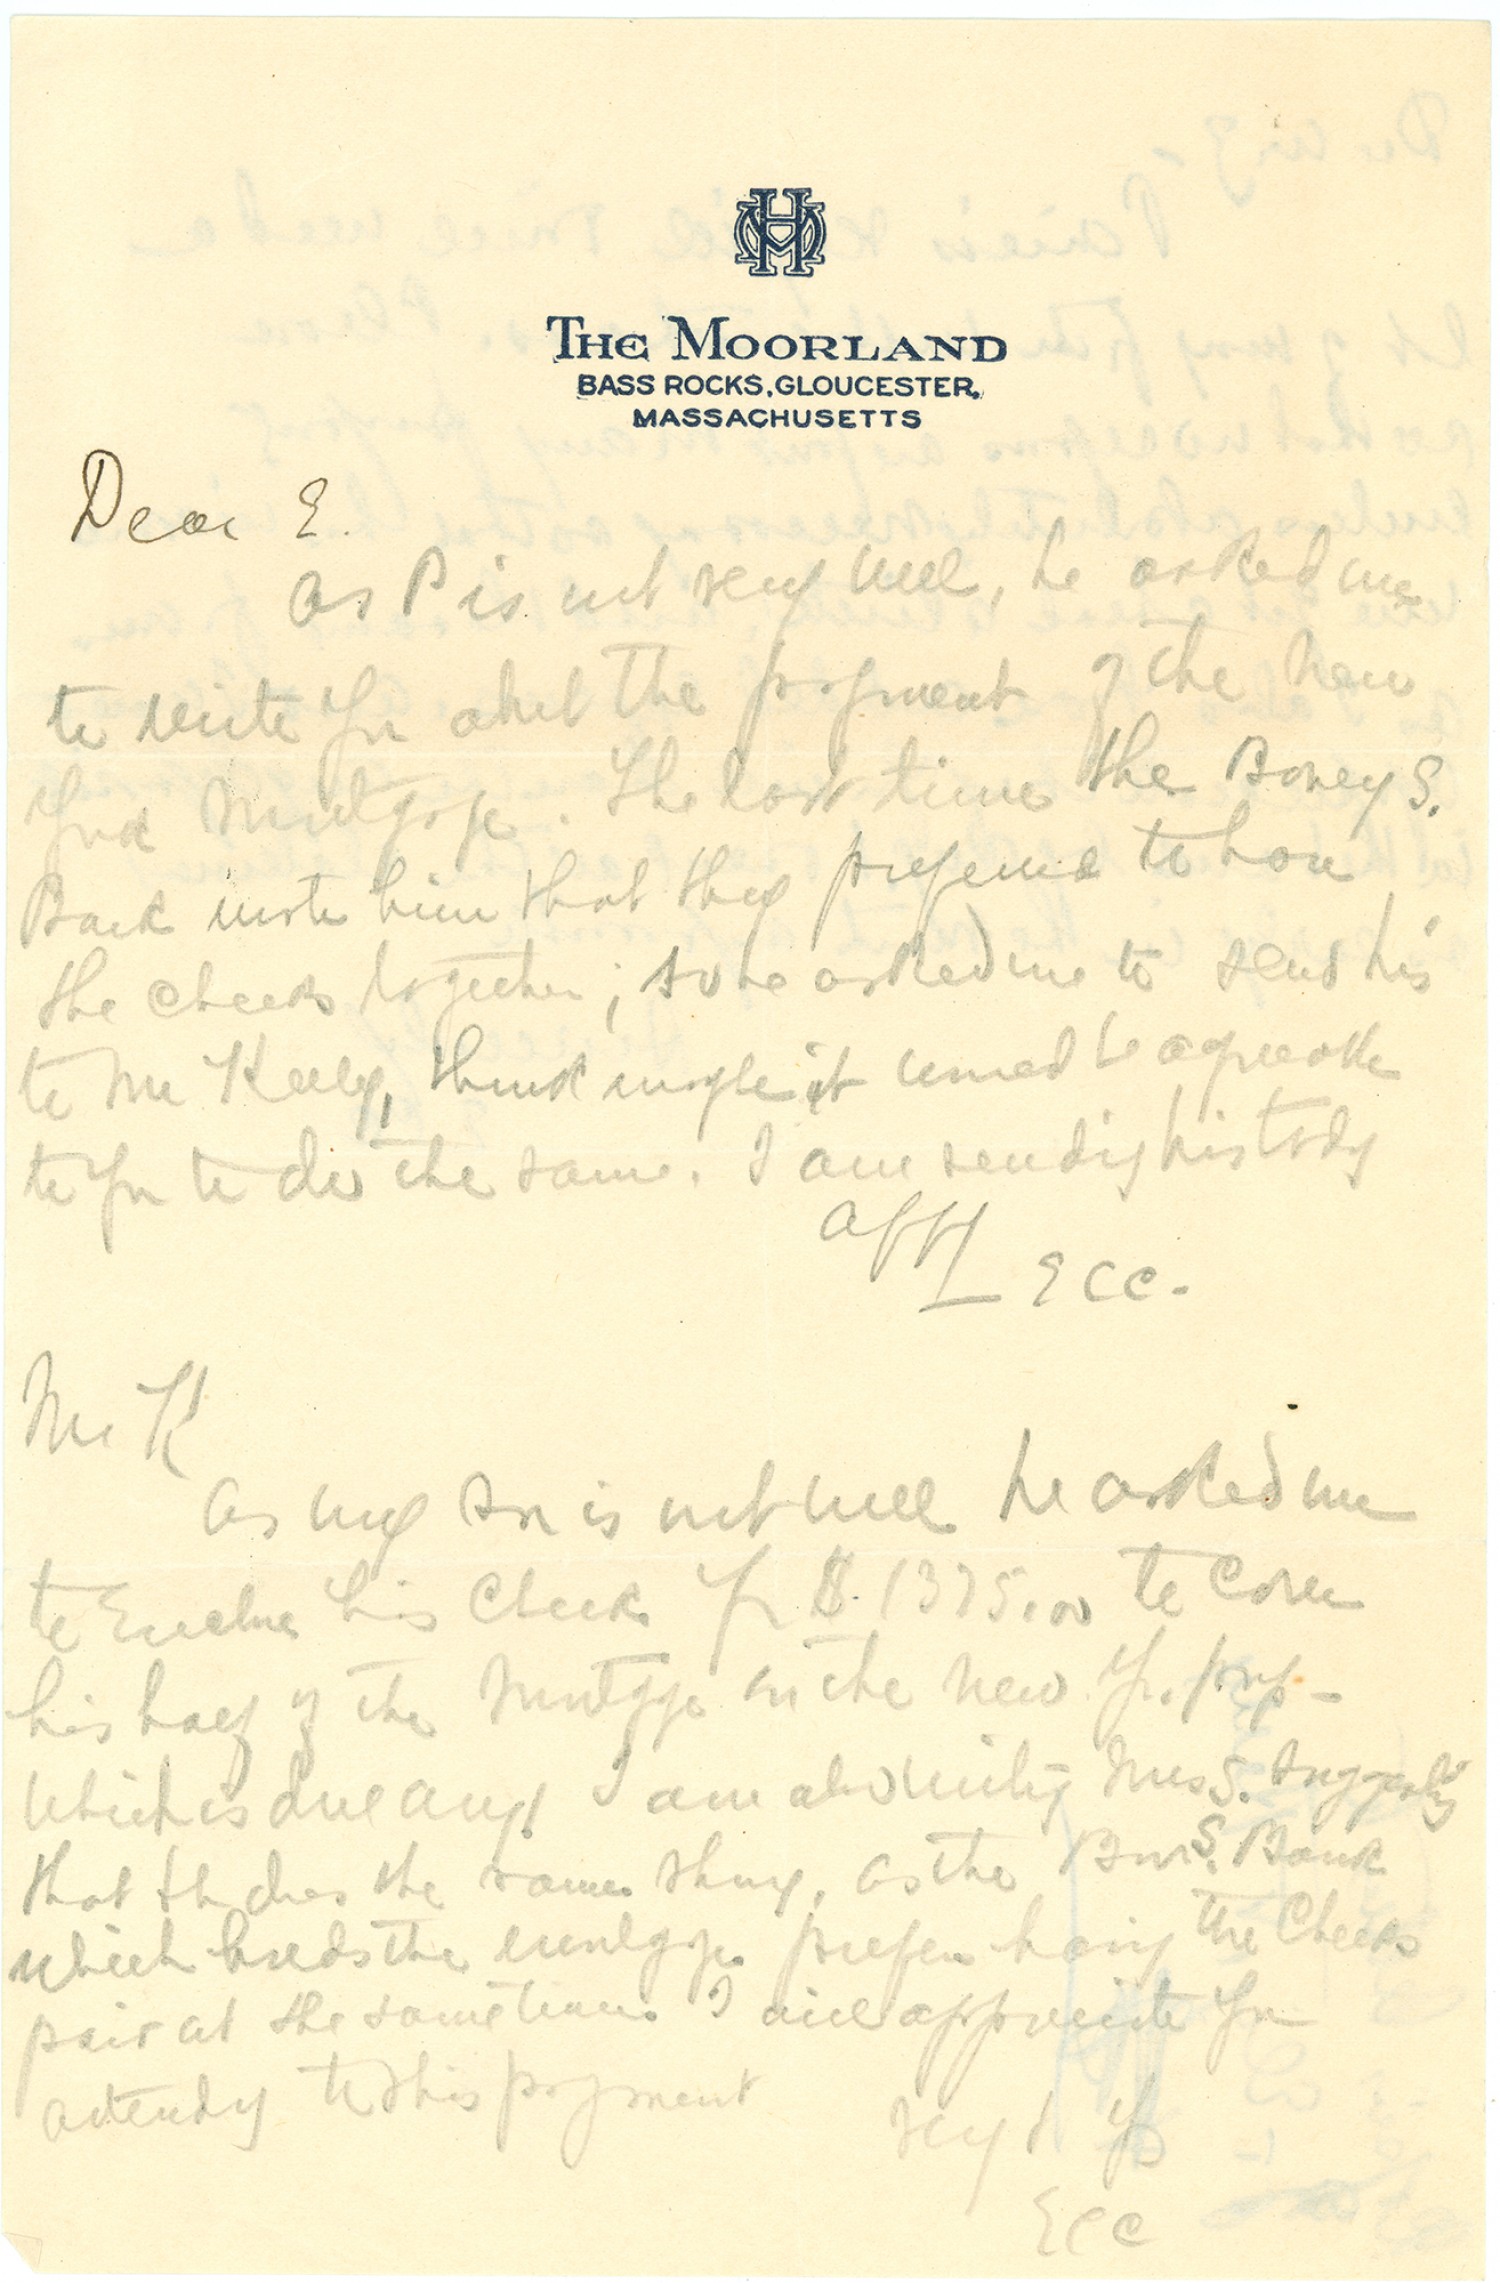 THE MOORLAND
BASS ROCKS, GLOUCESTER,
MASSACHUSETTS
Dear E.
As P is not very well, he asked me
to write you about the payment of the New
York Mortgage. The last time the Bowery S.
Bank wrote him that they preferred to have
the checks together; so he asked me to send his
to Mr Kelly, think it to be agreeable
to you to do the same. I am sending his today
Aff
E C C -
Mr K
As my son is not well he asked me
to Enclose his Check for $. 1375.00 to cover
his half of the Mortgge on the New Y. prop -
which is due Aug 1 I am also writing Mrs S. suggesting
that she does the same thing, as the Bw S. Bank
which holds the mortgge prefer having the Checks
paid at the same time. I will appreciate you
attendg to this payment
Very t ys
E C C